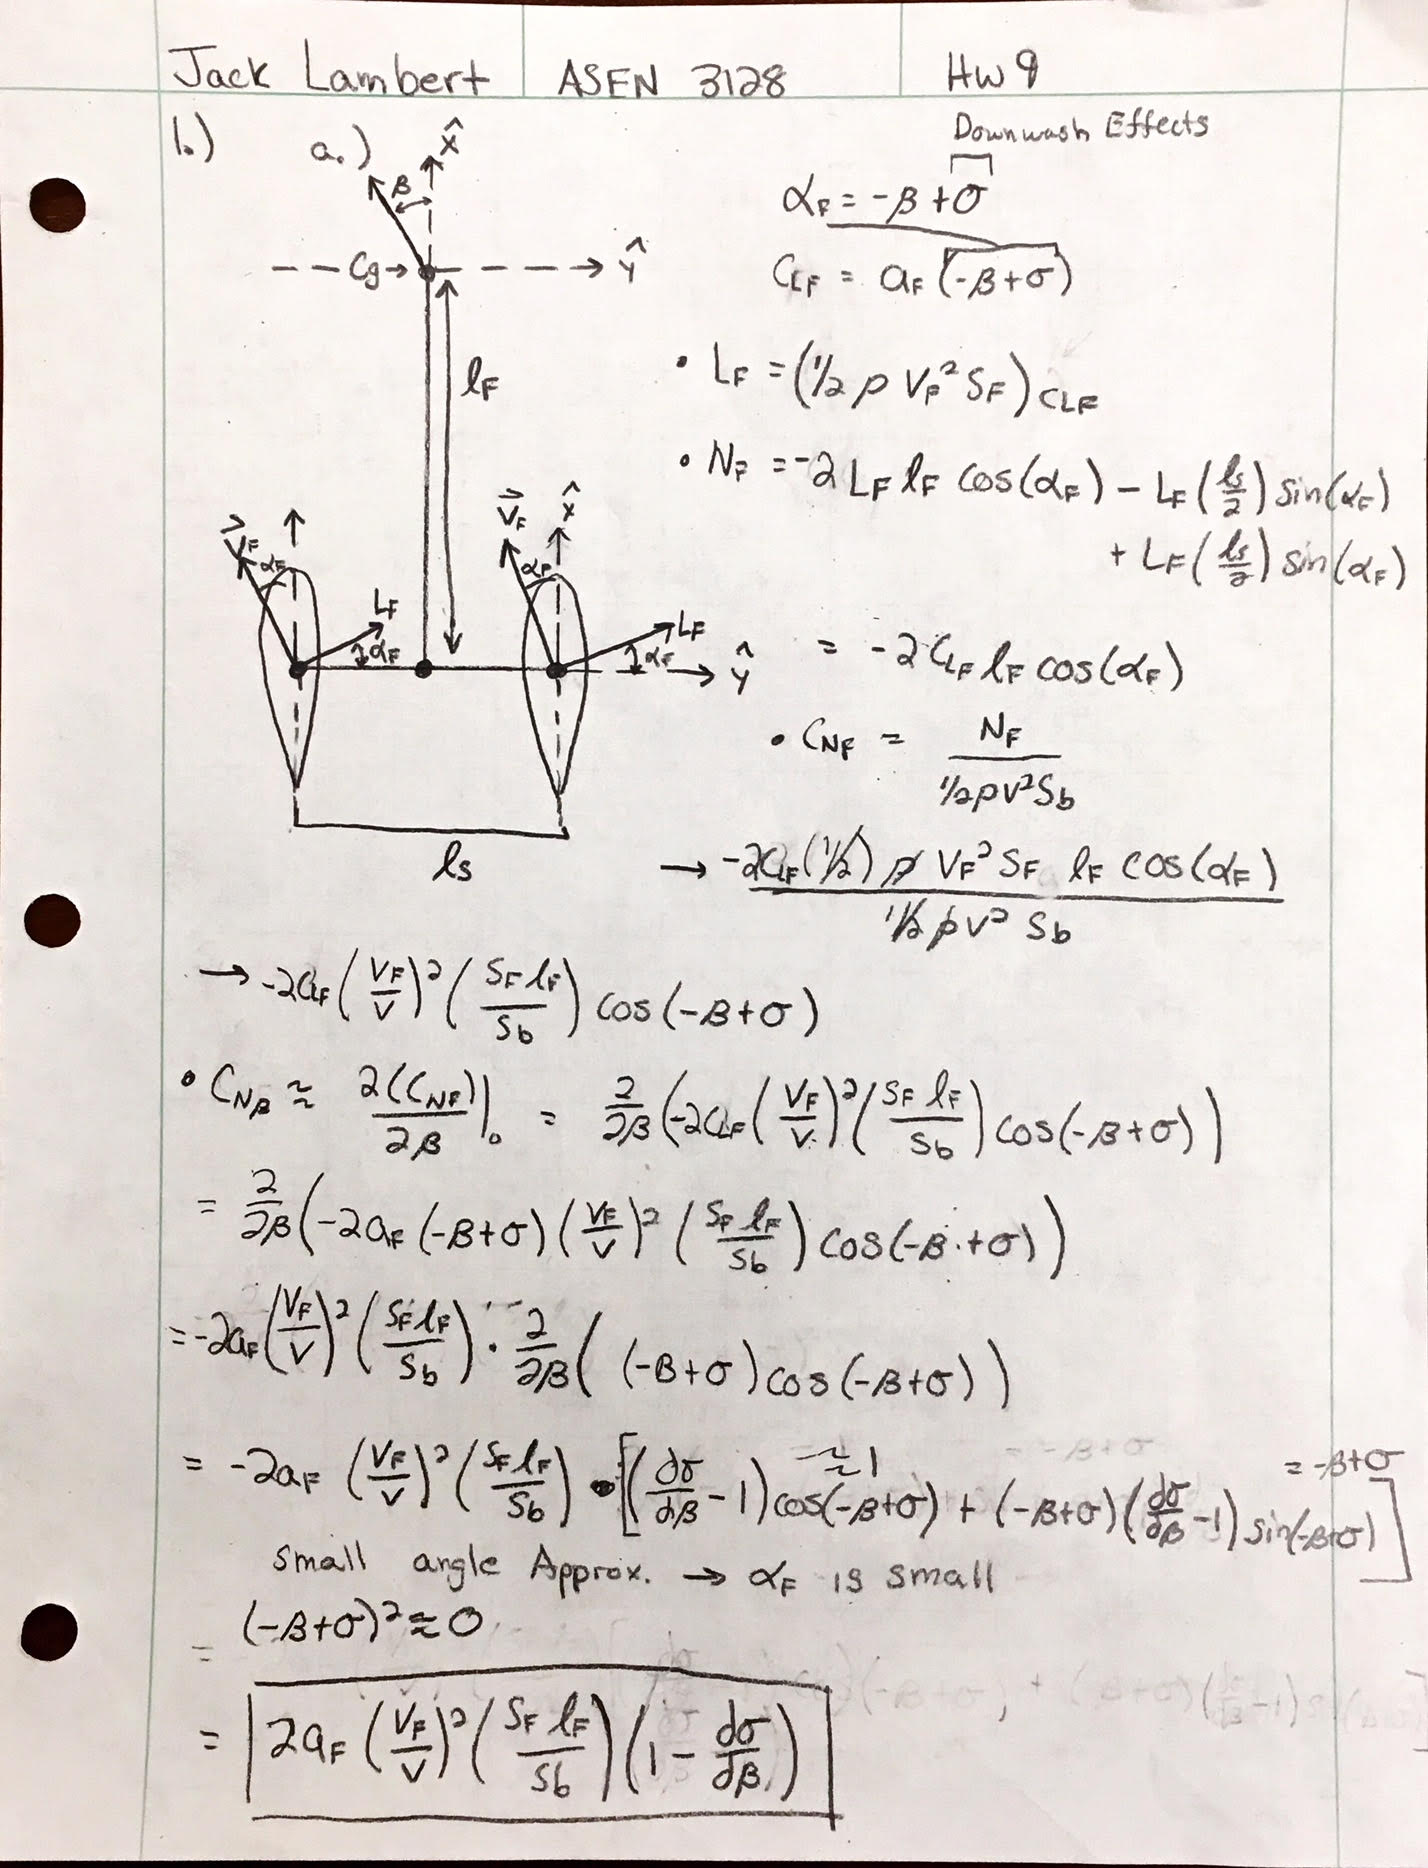 Jack Lambert ASEN 3128 HW 9
1.) a.) X̂ Downwash Effects
β
α_F = -β + σ
Cg → Ŷ
C_LF = a_F (-β + σ)
l_F
• L_F = (1/2 ρ V_F² S_F) C_LF
• N_F = -2 L_F l_F cos(α_F) - L_F (l_s/2) sin(α_F)
+ L_F (l_s/2) sin(α_F)
V_F α_F V_F α_F X̂
L_F α_F L_F α_F Ŷ
= -2 C_LF l_F cos(α_F)
• C_NF = N_F / 1/2 ρ V² S b
l_s
→ -2 C_LF (1/2) ρ V_F² S_F l_F cos(α_F) / 1/2 ρ V² S b
→ -2 C_LF (V_F/V)² (S_F l_F/S b) cos(-β + σ)
• C_Nβ ≈ ∂(C_NF)/∂β |₀ = ∂/∂β (-2 C_LF (V_F/V)² (S_F l_F/S b) cos(-β + σ))
= ∂/∂β (-2 a_F (-β + σ) (V_F/V)² (S_F l_F/S b) cos(-β + σ))
= -2 a_F (V_F/V)² (S_F l_F/S b) · ∂/∂β ((-β + σ) cos(-β + σ))
≈ 1 = -β + σ
= -2 a_F (V_F/V)² (S_F l_F/S b) • [(dσ/dβ - 1) cos(-β + σ) + (-β + σ) (dσ/dβ - 1) sin(-β + σ)]
small angle Approx. → α_F is small
(-β + σ)² ≈ 0
=
= 2 a_F (V_F/V)² (S_F l_F/S b) (1 - dσ/dβ)